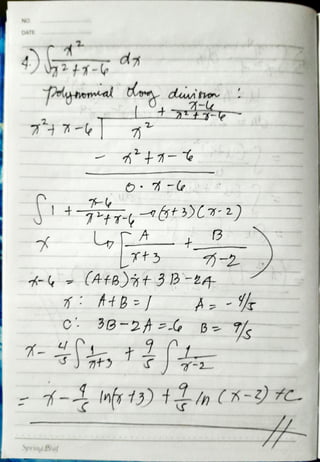 NO
DATE
4.) ∫ x² / x² + x - 6 dx
Polynomial long division :
1 + x-6 / x² + x - 6
x² + x - 6 ) x²
- x² + x - 6
0 · x - 6
∫ 1 + x-6 / x² + x - 6 → (x+3)(x-2)
x ↳ [ A / x+3 + B / x-2 )
x-6 = (A+B)x + 3B - 2A
x : A+B = 1 A = - 4/5
C : 3B - 2A = -6 B = 9/5
x - 4/5 ∫ 1 / x+3 + 9/5 ∫ 1 / x-2
= x - 9/5 ln(x+3) + 9/5 ln (x-2) + C